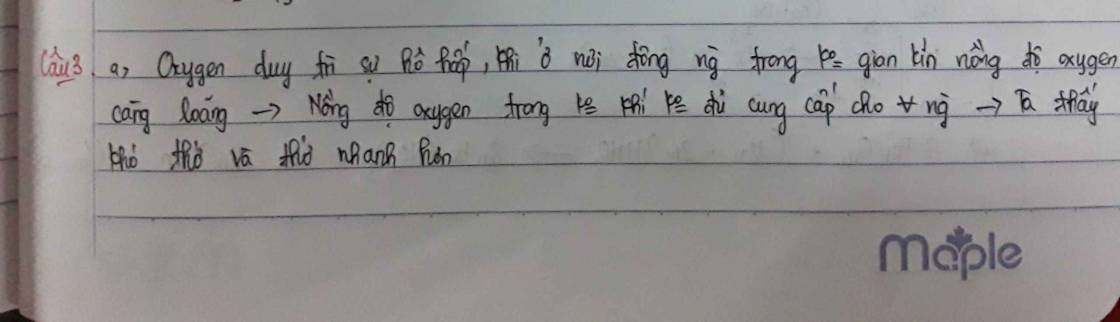 Câu3 a, Oxygen duy trì sự hô hấp, khi ở nơi đông ng̀ trong k= gian kín nồng độ oxygen
càng loãng → Nồng độ oxygen trong k= khí k= đủ cung cấp cho ∀ ng̀ → Ta thấy
khó thở và thở nhanh hơn
maple